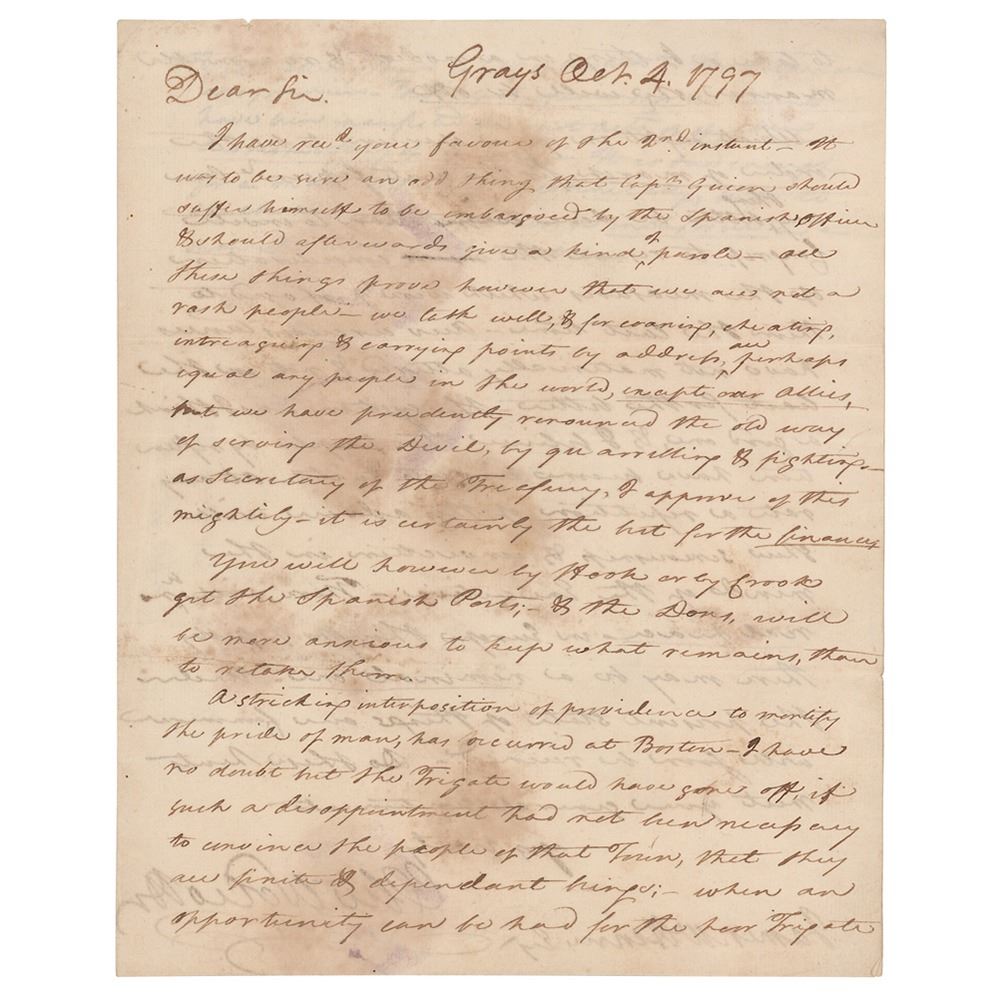 Grays Oct. 4. 1797
Dear Sir.
I have recd your favour of the 2nd instant – It
was to be sure an odd thing that Capn Guion should
suffer himself to be embargoed by the Spanish officer
& should afterwards give a kind of parole – all
these things prove however that we are not a
rash people – we talk well, & for coaxing, cheating,
intreaguing & carrying points by address, are perhaps
equal any people in the world, except our Allies,
but we have prudently renounced the old way
of serving the Devil, by quarrelling & fighting –
as Secretary of the Treasury, I approve of this
mightily – it is certainly the best for the finances
You will however by Hook or by Crook
get the Spanish Posts; – & the Dons, will
be more anxious to keep what remains, than
to retake them.
A stricking interposition of providence to mortify
the pride of man, has occurred at Boston – I have
no doubt but the Frigate would have gone off if
such a disappointment had not been necessary
to convince the people of that Town, that they
are finite & dependant beings; – when an
opportunity can be had for the poor Frigate